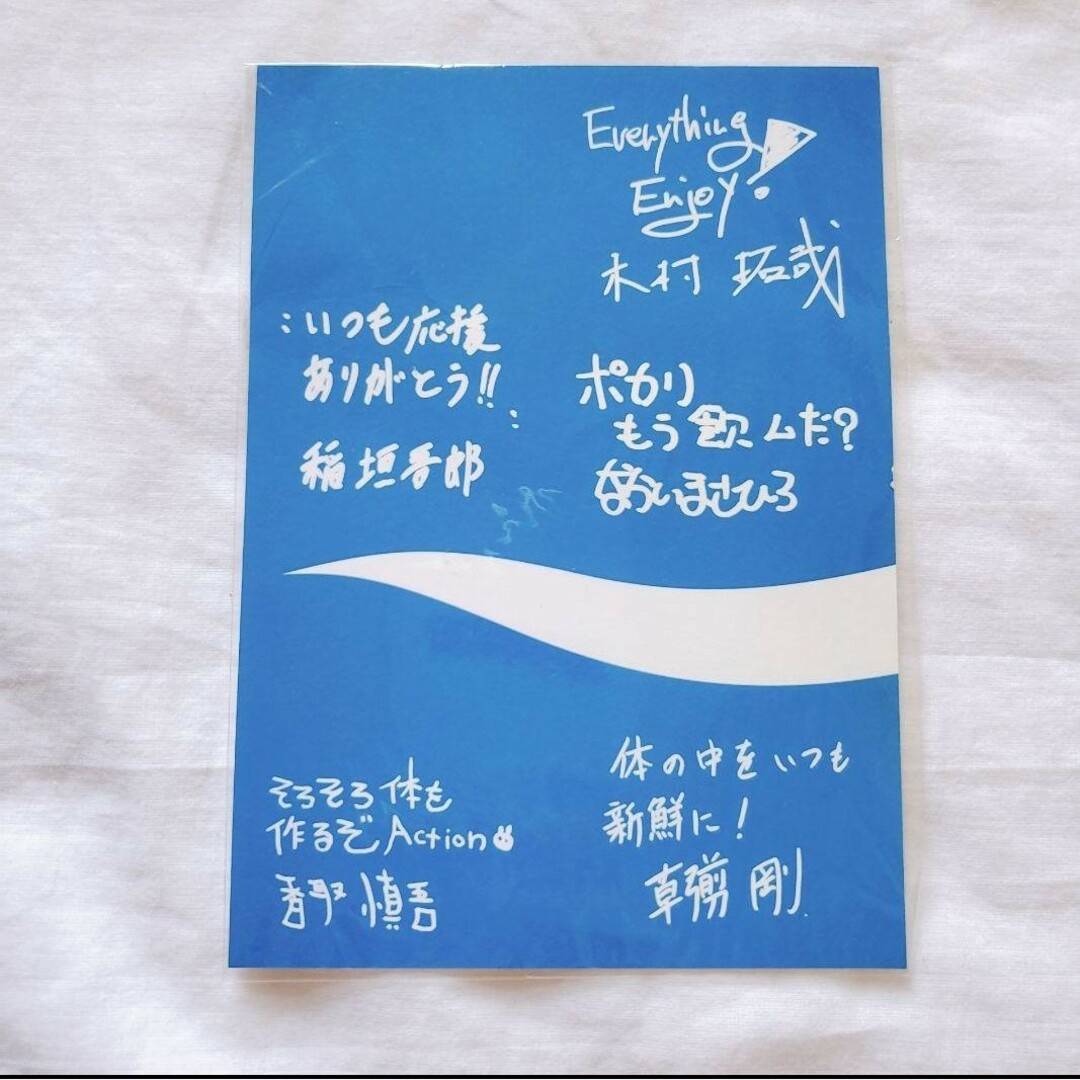 Everything
Enjoy!
木村 拓哉
:いつも応援
ありがとう!!:
稲垣吾郎
ポカリ
もう飲ムだ?
まさひろ
そろそろ体も
作るぞAction
香取 慎吾
体の中をいつも
新鮮に!
草彅 剛